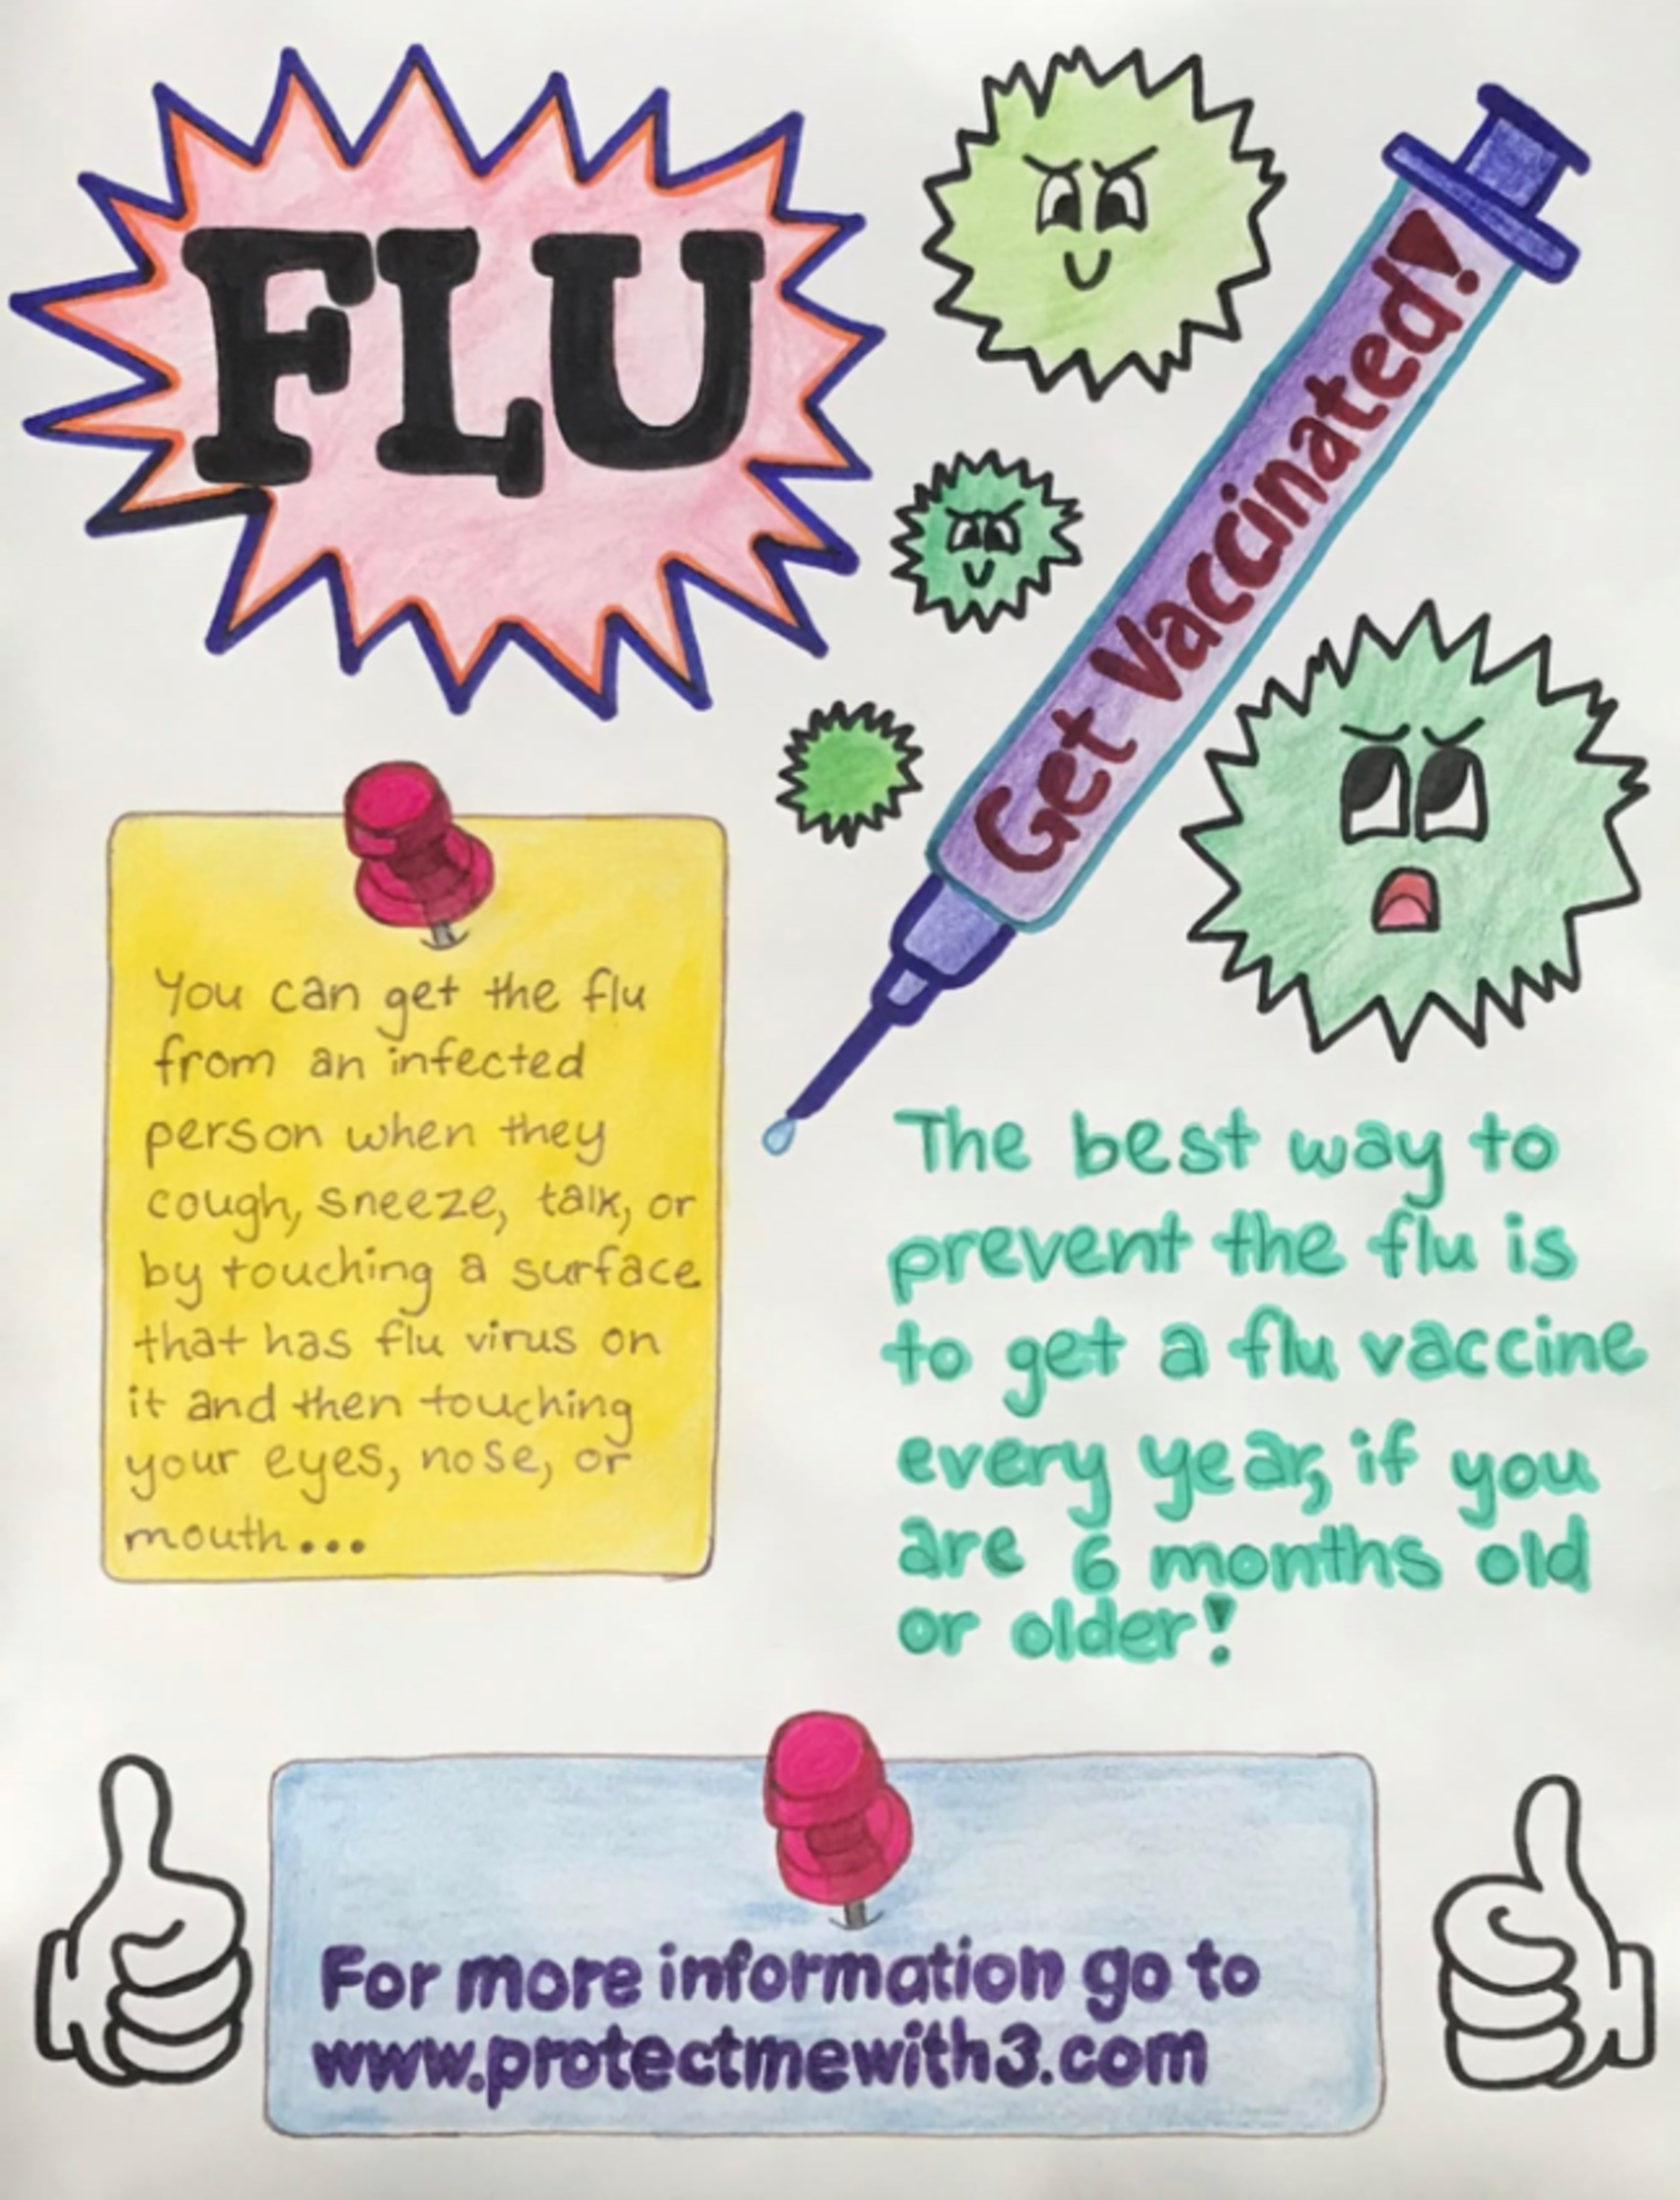 FLU
Get Vaccinated!
You can get the flu
from an infected
person when they
cough, sneeze, talk, or
by touching a surface
that has flu virus on
it and then touching
your eyes, nose, or
mouth...
The best way to
prevent the flu is
to get a flu vaccine
every year, if you
are 6 months old
or older!
For more information go to
www.protectmewith3.com